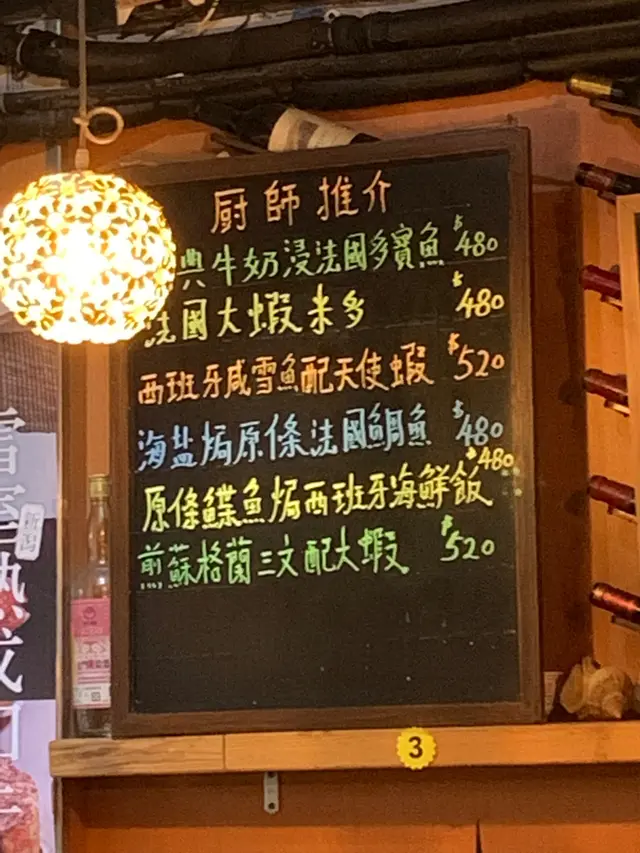 厨師推介
典牛奶浸法國多寶魚 $480
法國大蝦米多 $480
西班牙咸雪魚配天使蝦 $520
海盐焗原條法國鯛魚 $480
原條鰈魚焗西班牙海鮮飯 $480
煎蘇格蘭三文配大蝦 $520
新潟
熟成
3